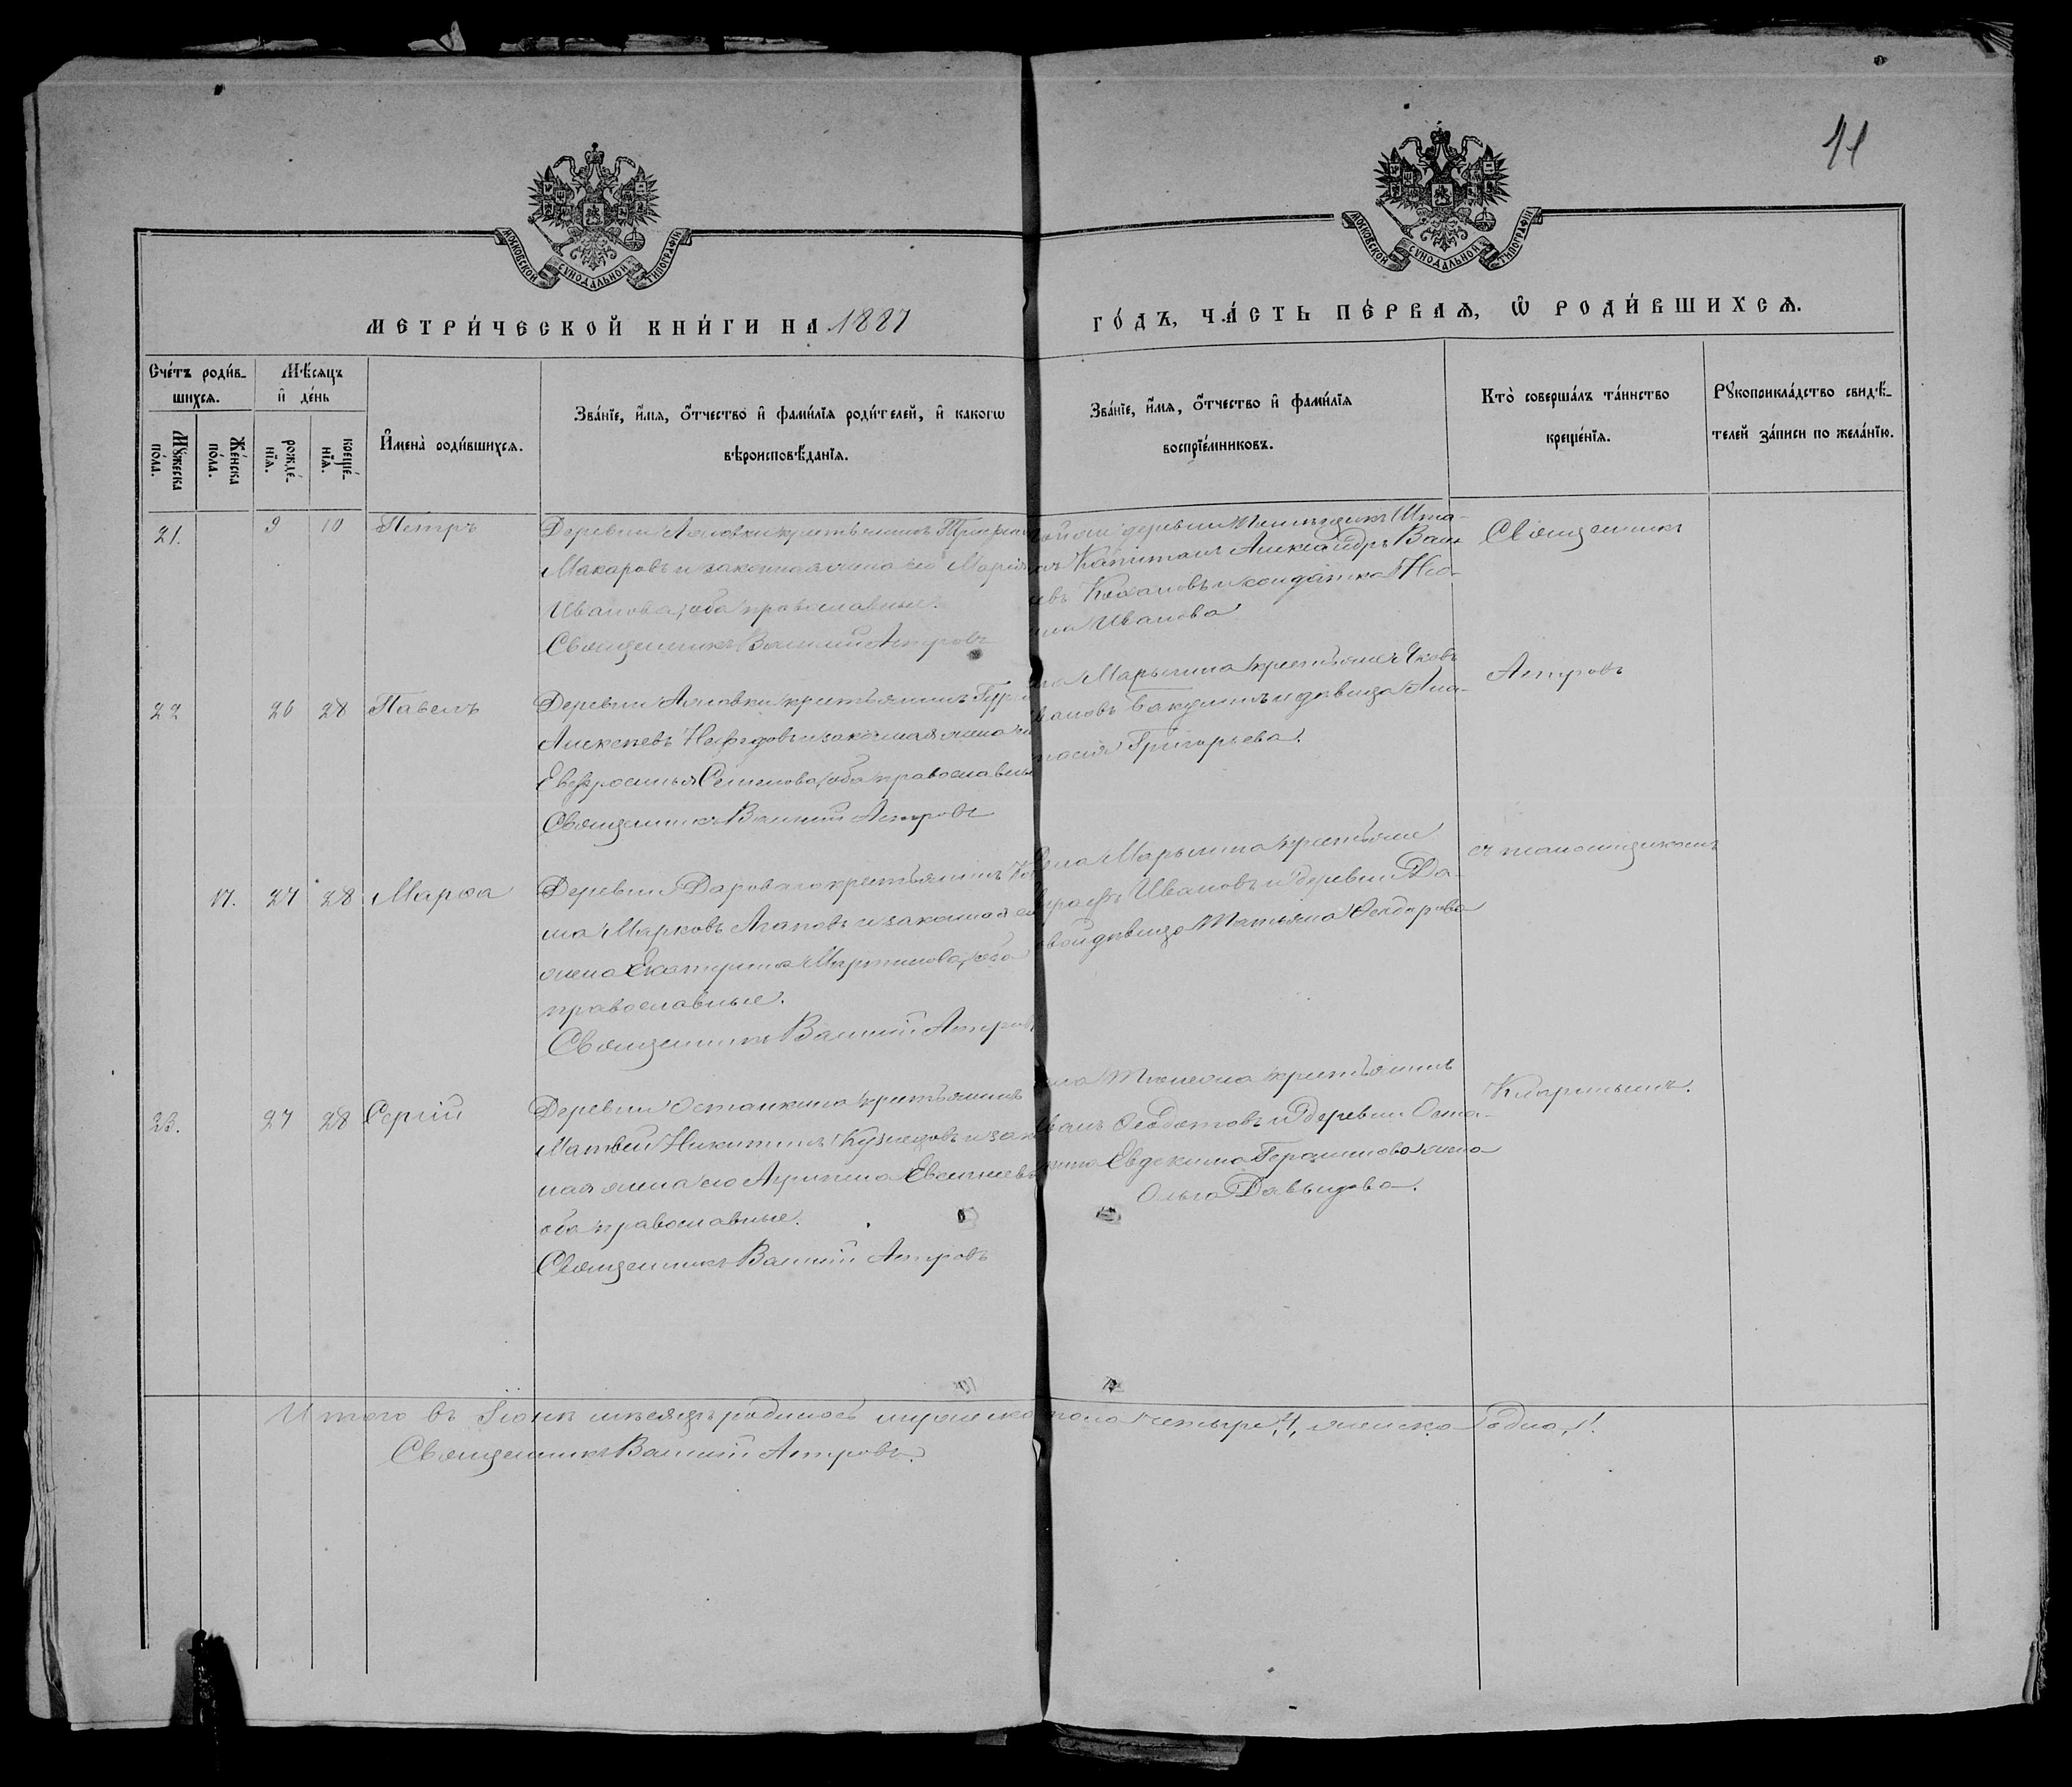 41
МОСКОВСКОЙ СѴНОДАЛЬНОЙ ТИПОГРАФІИ
МОСКОВСКОЙ СѴНОДАЛЬНОЙ ТИПОГРАФІИ
МЕТРИ́ЧЕСКОЙ КНИ́ГИ НА 1887
ГО́ДЪ, ЧА́СТЬ ПЕ́РВАѦ, Ѽ РОДИ́ВШИХСѦ.
Сче́тъ роди́в-
шихсѧ.
Мꙋ́жеска по́ла.
Же́нска по́ла.
Мѣ́сѧцъ
и҆ де́нь
рожде́-
нїѧ.
креще́-
нїѧ.
И҆мена̀ роди́вшихсѧ.
Зва́нїе, и҆́мѧ, ѻ҆́тчество и҆ фами́лїѧ роди́телей, и҆ какогѡ
вѣроисповѣ́данїѧ.
Зва́нїе, и҆́мѧ, ѻ҆́тчество и҆ фами́лїѧ
воспрїе́мниковъ.
Кто̀ соверша́лъ та́инство
креще́нїѧ.
Рꙋкоприкла́дство свидѣ́-
телей за́писи по жела́нїю.
21. 9 10 Петръ
Деревни крестьянинъ
Макаровъ и законная жена его Марія
Иванова, оба православные.
Священникъ Василій Астровъ
деревни Шта-
Капитанъ Александръ Васи-
евъ и солдатка
Иванова
Священникъ
22 26 28 Павелъ
Деревни крестьянинъ
Алексѣевъ Нефедовъ и законная жена
Евфросинья Семенова, оба православные
Священникъ Василій Астровъ
Марьина крестьянинъ Яковъ
вановъ и дѣвица Ана-
тасія Григорьева.
Астровъ
17. 27 28 Марѳа
Деревни Дароваго крестьянинъ
Марковъ Агаповъ и законная его
жена Екатерина Мартинова, оба
православные.
Священникъ Василій Астровъ
Села Марьина крестьяне
Ивановъ и деревни Да-
овой дѣвица Татьяна Ѳеодорова
съ псаломщикомъ
23. 27 28 Сергій
Деревни Останкина крестьянинъ
Матвей Никитинъ Кузнецовъ и закон
ная жена его Агрипина
оба православные.
Священникъ Василій Астровъ
крестьянинъ
Иванъ Ѳеодотовъ и деревни Оста-
кина Евдокима Герасимова жена
Ольга Давыдова.
Кларинымъ.
Итого въ Іюнѣ мѣсяцѣ родилось мужеска пола четыре, 4, женска одно, 1.
Священникъ Василій Астровъ.